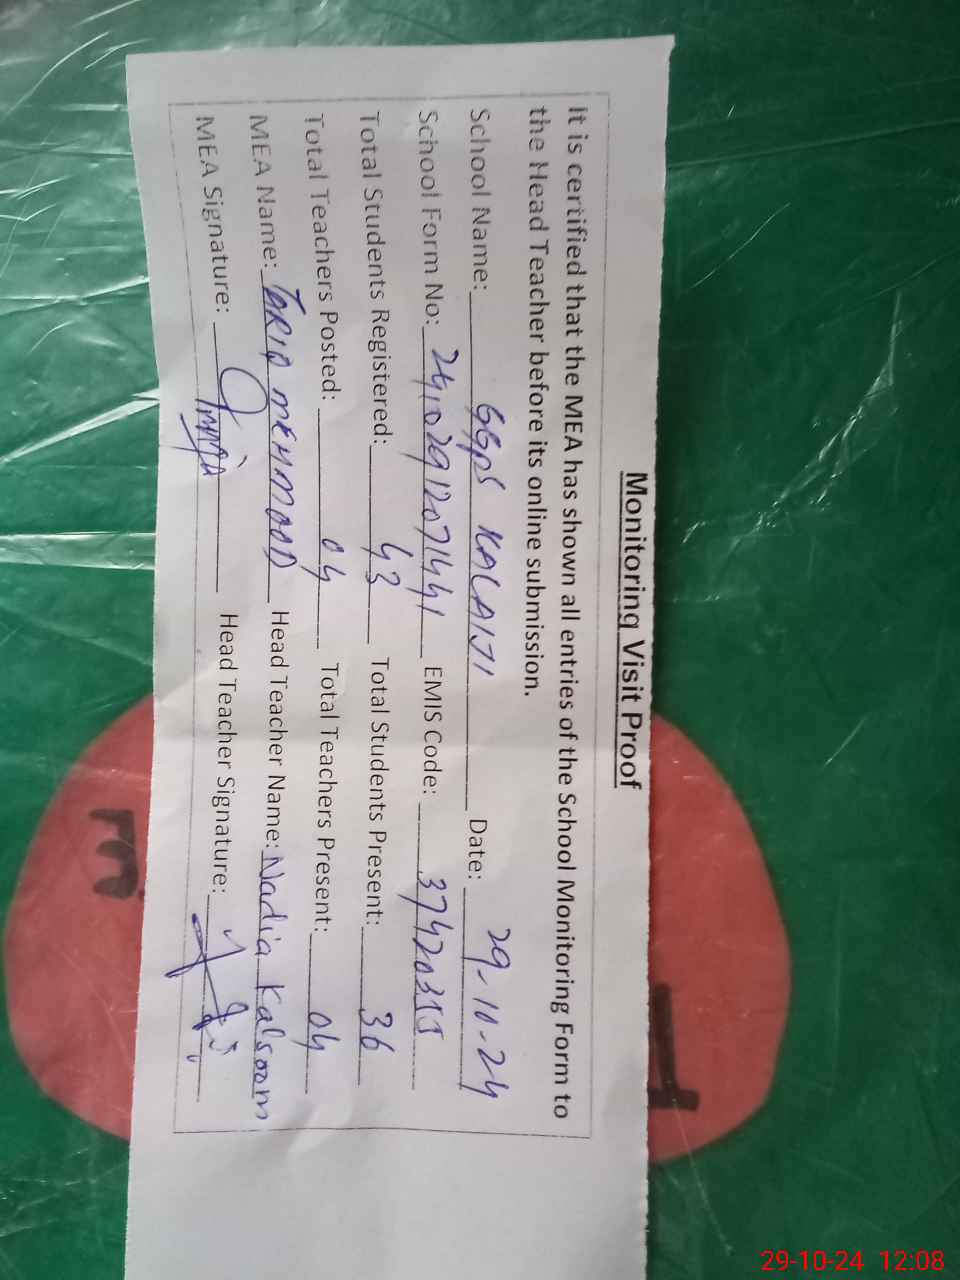 Monitoring Visit Proof
It is certified that the MEA has shown all entries of the School Monitoring Form to
the Head Teacher before its online submission.
School Name: GGPS KALAIJI Date: 29-10-24
School Form No: 24102912071441 EMIS Code: 37420355
Total Students Registered: 43 Total Students Present: 36
Total Teachers Posted: 04 Total Teachers Present: 04
MEA Name: TARIQ MEHMOOD Head Teacher Name: Nadia Kalsoom
MEA Signature: Head Teacher Signature:
29-10-24 12:08